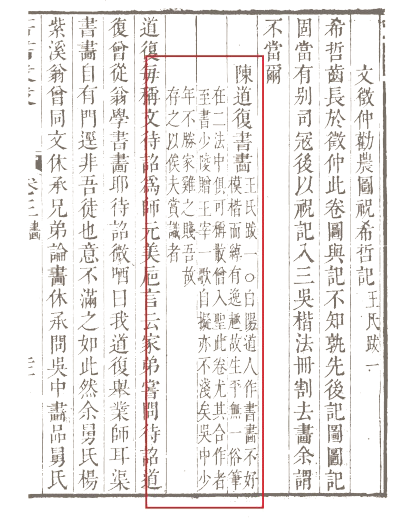 文徵仲勸農圖祝希哲記 王氏跋一
希哲齒長於徵仲此卷圖與記不知孰先後記圖圖記
固當有別司冦後以祝記入三吳楷法冊割去畫余謂
不當爾
陳道復書畫
王氏跋一○白陽道人作書畫不好
模楷而綽有逸趣故生平無一俗筆
在二法中俱可稱散僧入聖此卷尤其合作者
至書少陵贈王宰一歌自擬亦不淺矣吳中少
年不勝家雞之賤吾故
存之以俟大賞識者
道復每稱文待詔爲師元美巵言云家弟嘗問待詔道
復曾從翁學書畫耶待詔微哂曰我道復舉業師耳渠
書畫自有門逕非吾徒也意不滿之如此然余舅氏楊
紫溪翁曾同文休承兄弟論畫休承問吳中畫品舅氏